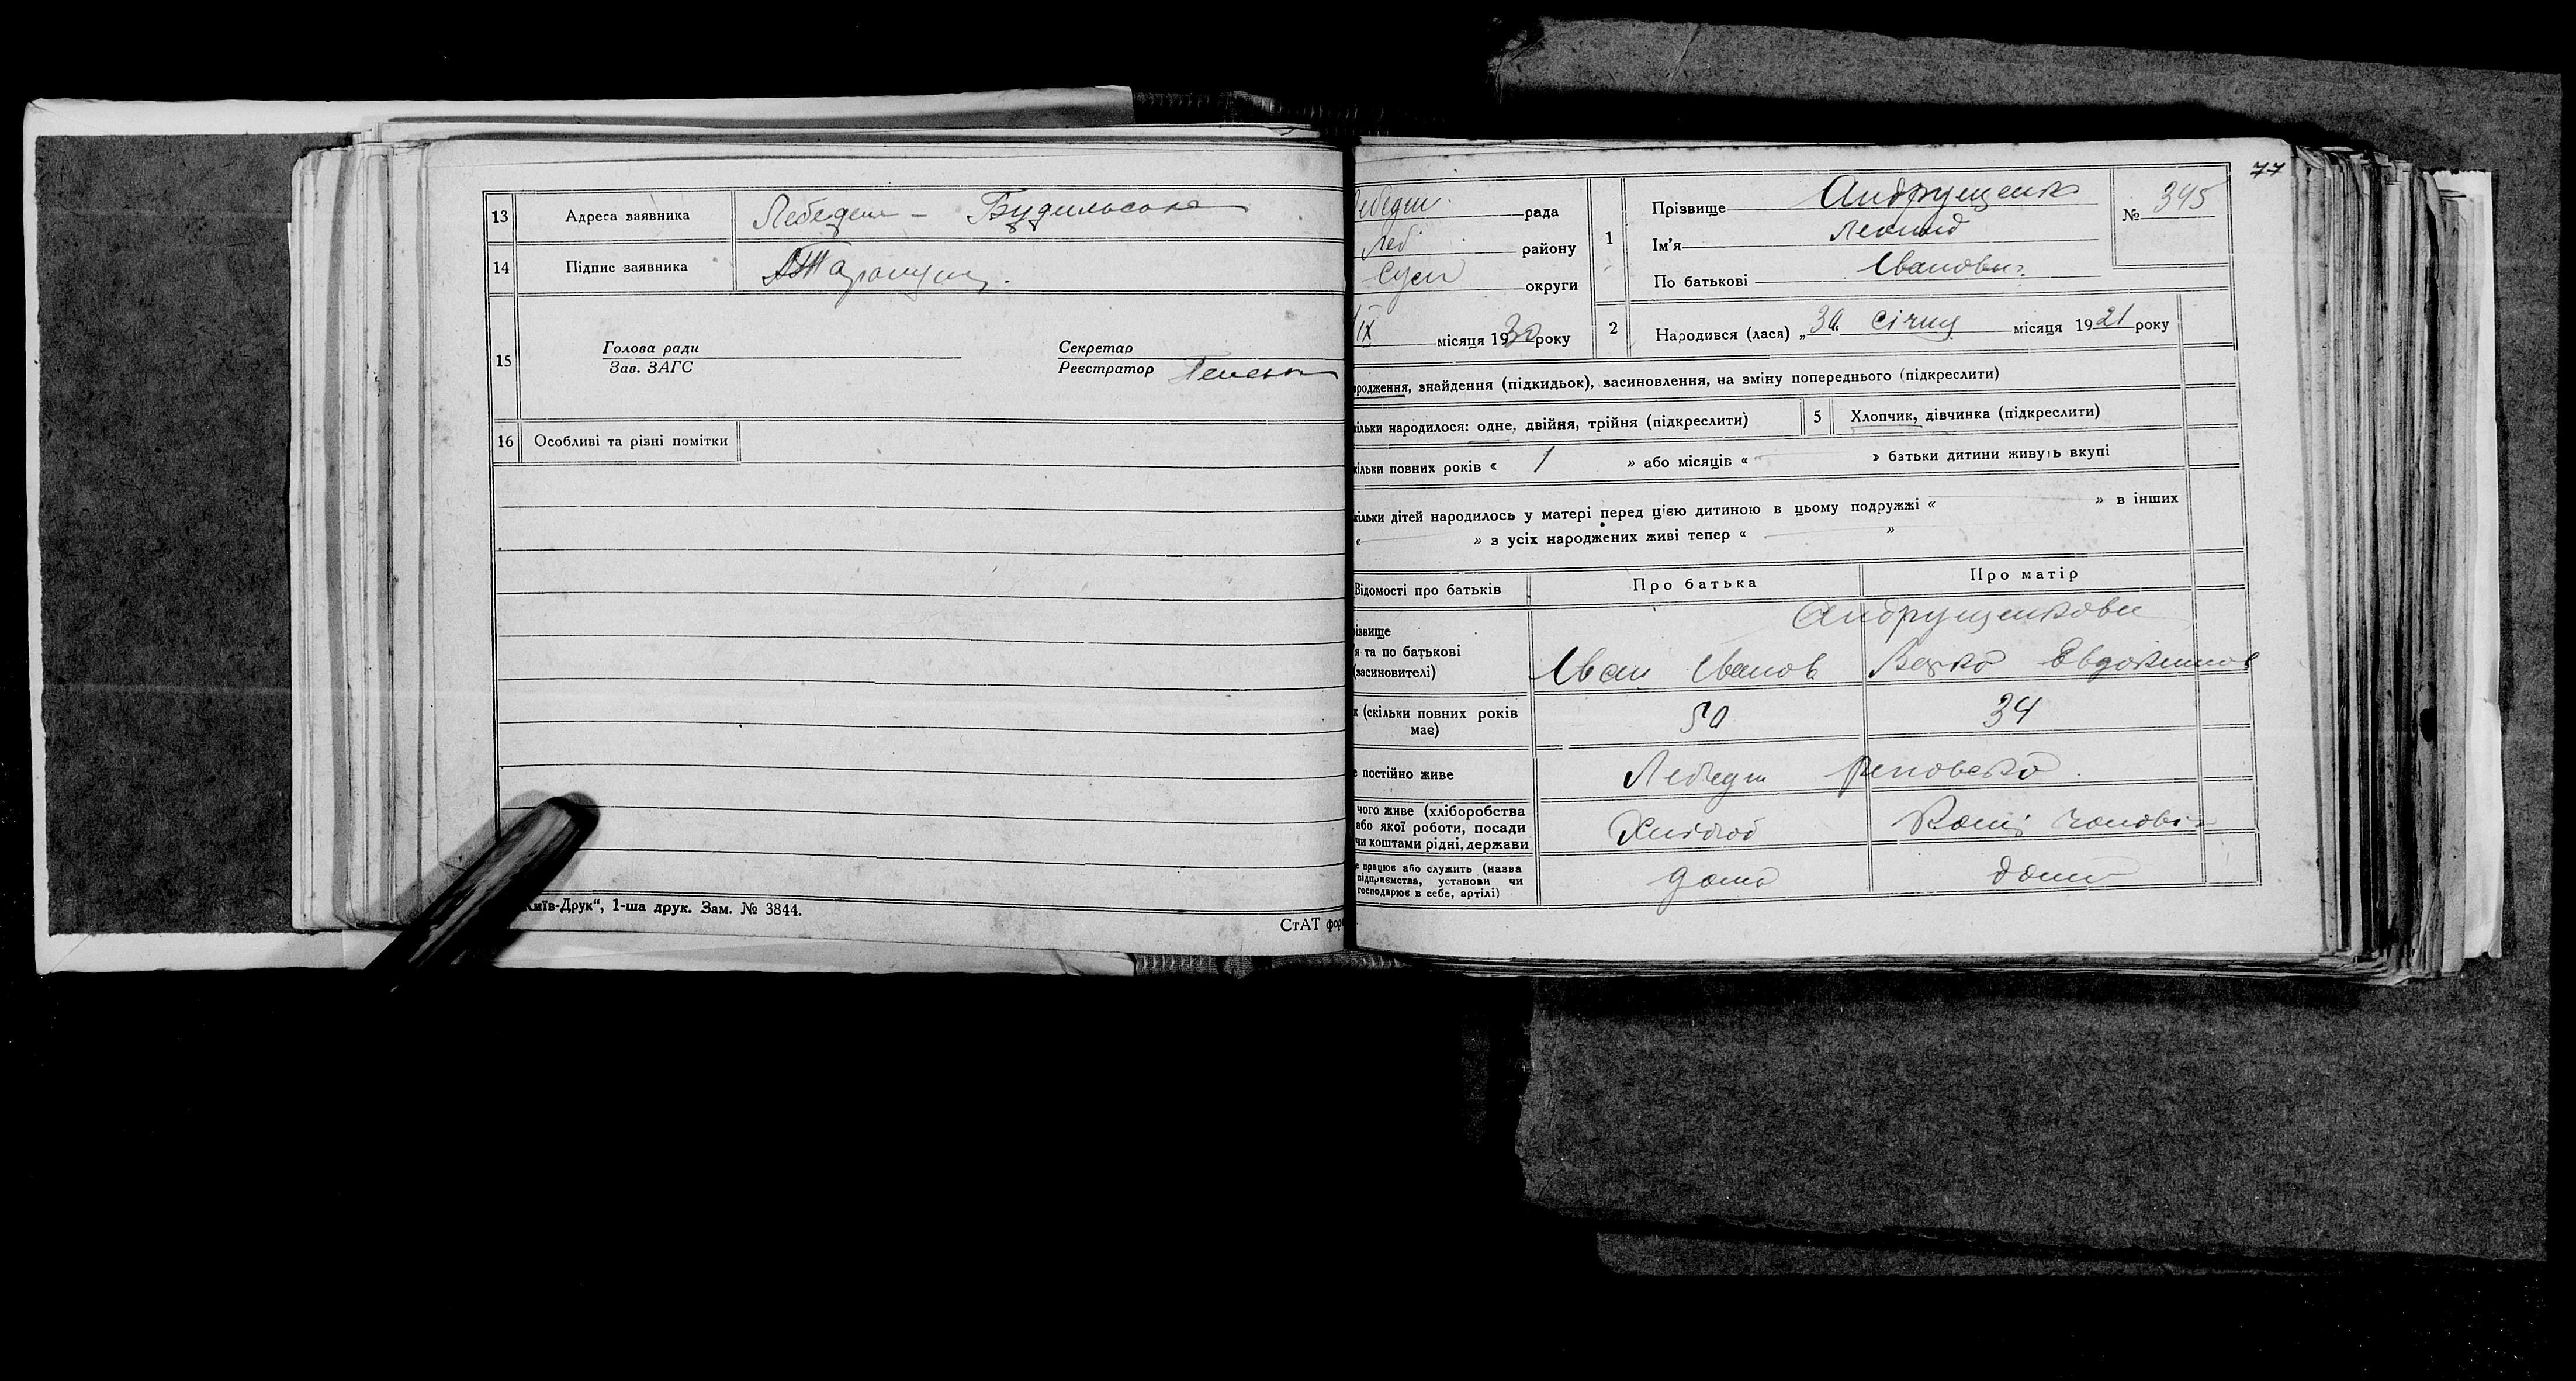 13 Адреса заявника Лебедин - Будильська
14 Підпис заявника
15 Голова ради Секретар
Зав. ЗАГС Реєстратор
16 Особливі та різні помітки
Київ-Друк“, 1-ша друк. Зам. № 3844.
СтАТ фор
77
Лебедин. рада
Леб району
Сум округи
IX місяця 1930 року
1 Прізвище Андрущенко
Ім’я Леонид
По батькові Іванович
№ 345
2 Народився (лася) „30 січня місяця 1921 року
ародження, знайдення (підкидьок), засиновлення, на зміну попереднього (підкреслити)
кільки народилося: одне, двійня, трійня (підкреслити) 5 Хлопчик, дівчинка (підкреслити)
кільки повних років « 1 » або місяців « » батьки дитини живуть вкупі
кільки дітей народилось у матері перед цією дитиною в цьому подружжі « » в інших
« » з усіх народжених живі тепер « »
Відомості про батьків Про батька Про матір
Андрущенкови
ізвище
я та по батькові
(засиновителі)
Іван Іванов Евдокимов
к (скільки повних років
має)
50 34
е постійно живе Лебедин
чого живе (хліборобства
або якої роботи, посади
чи коштами рідні, держави
Хлібороб Кошт. чоловіка
е працює або служить (назва
підприємства, установи чи
господарює в себе, артілі)
дома дома